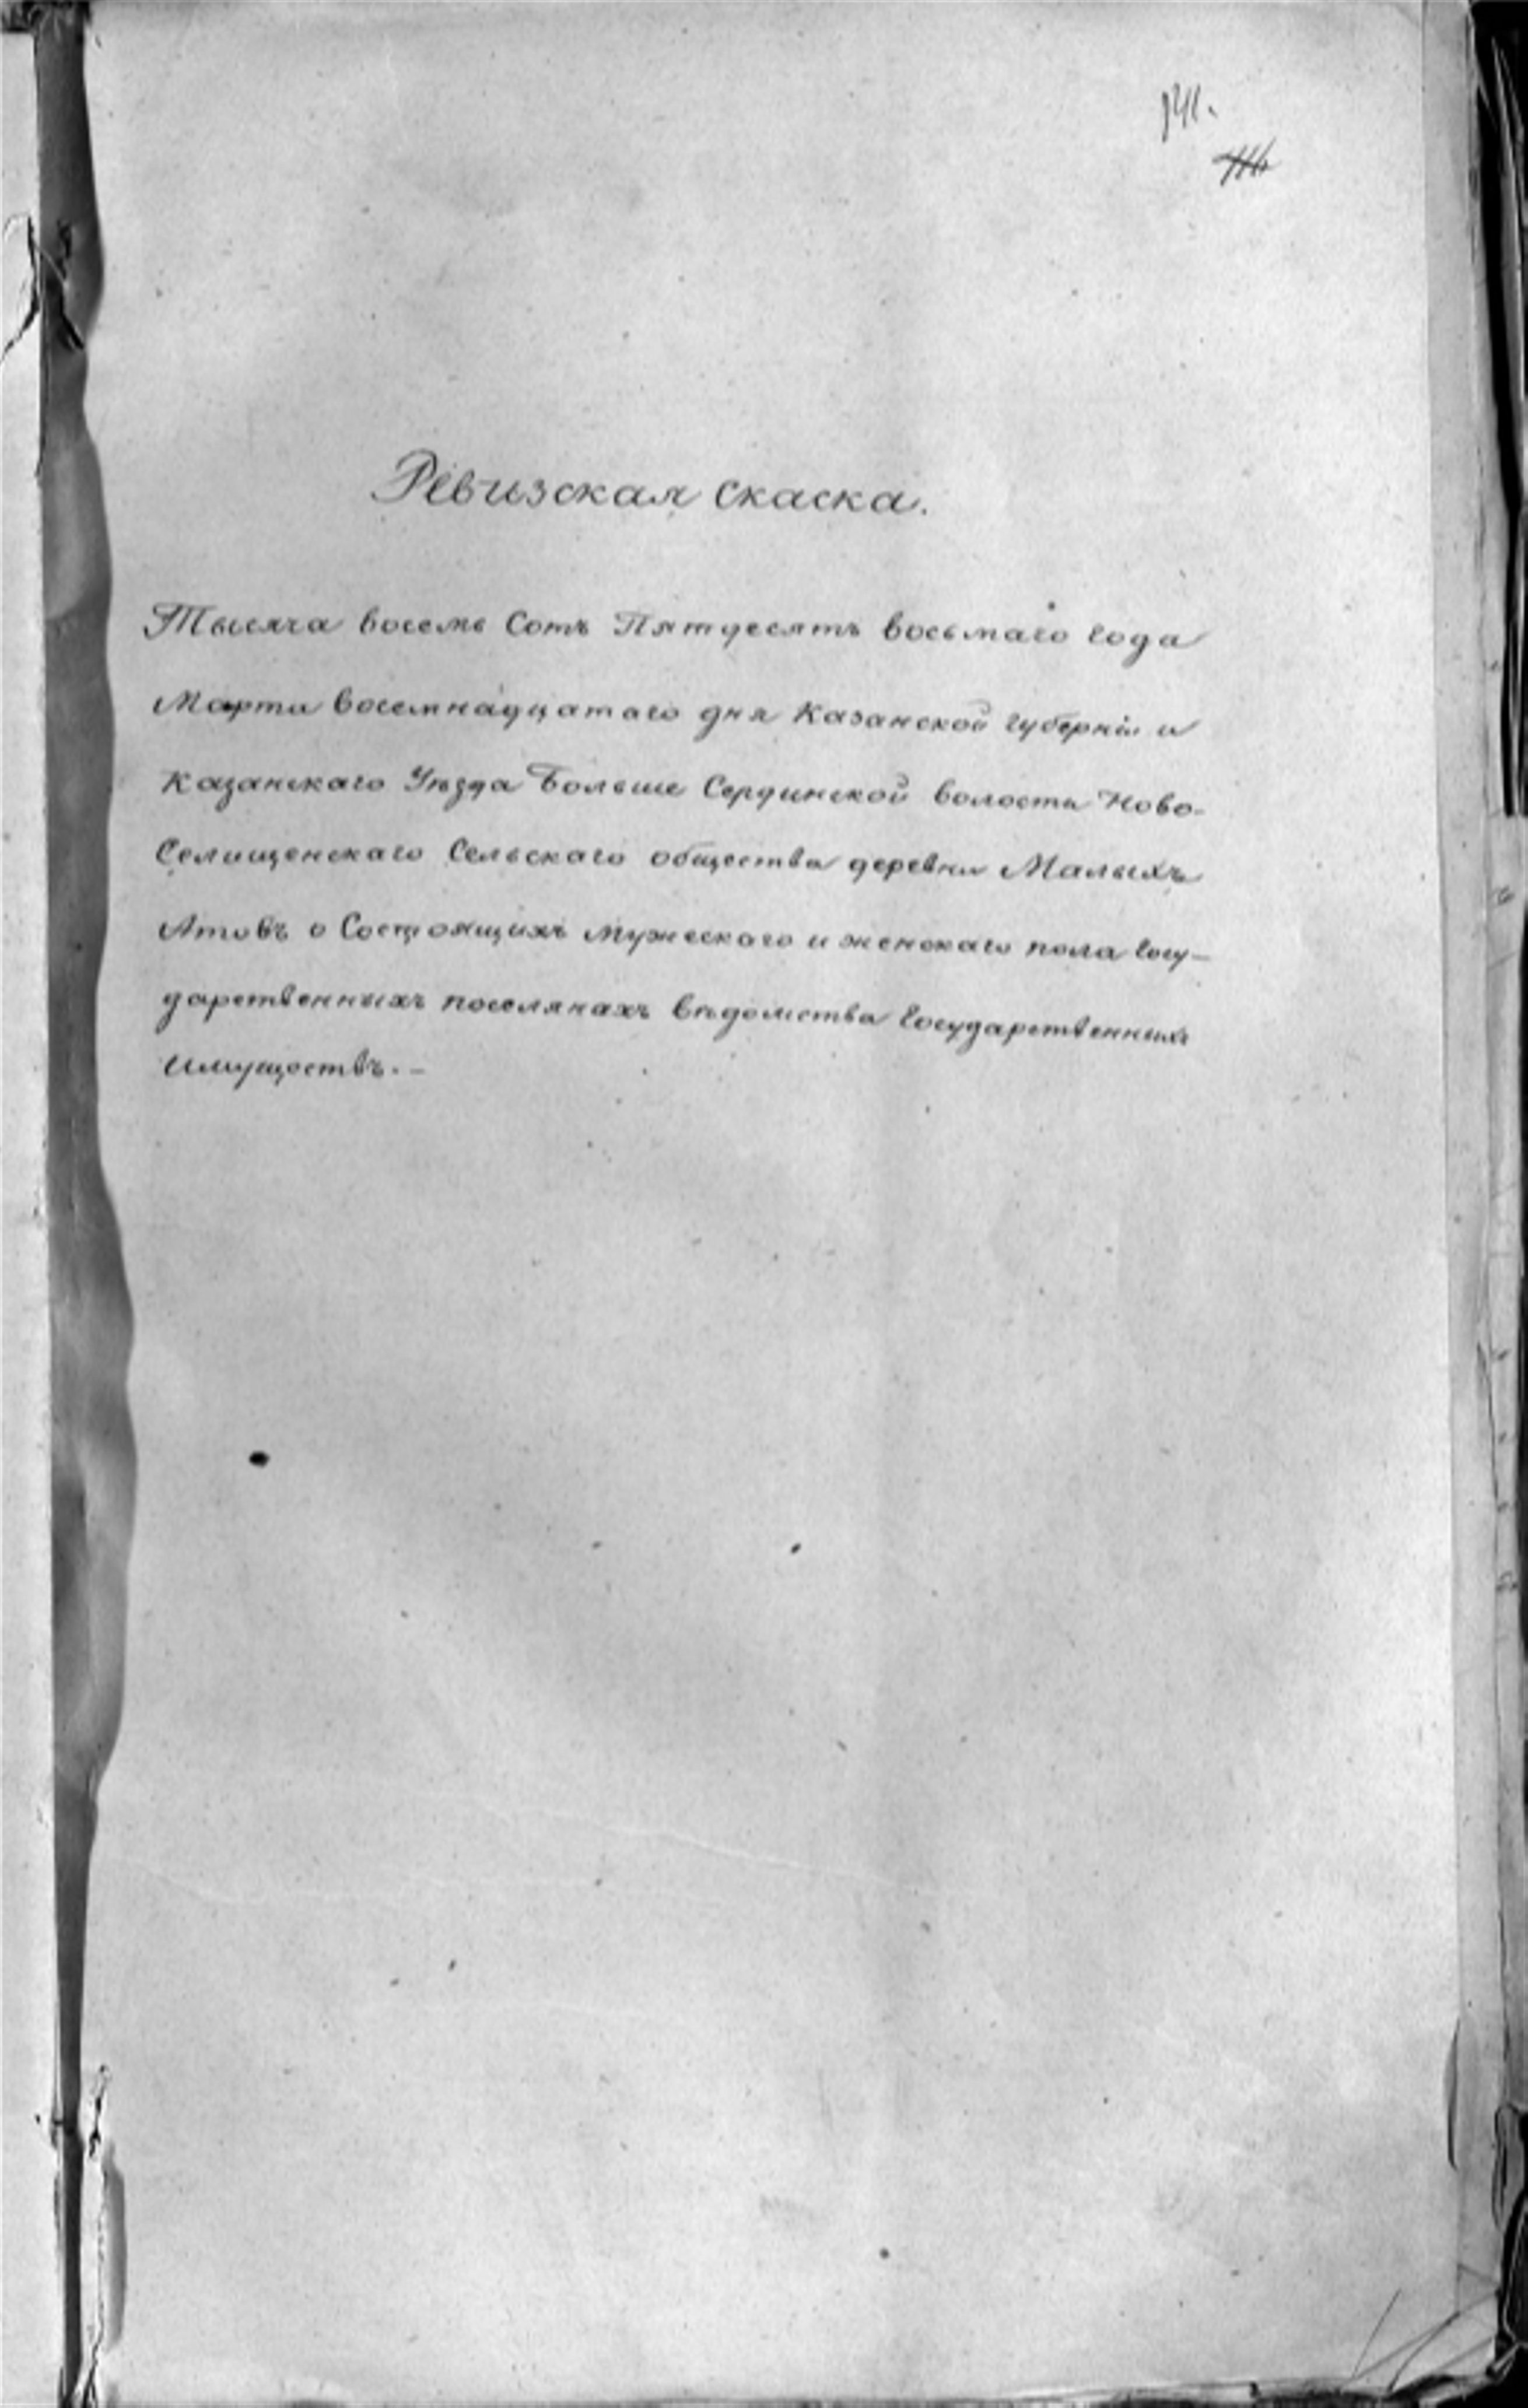 Ревизская скаска.
Тысяча восемь Сотъ Пятдесятъ восьмаго года
Марта восемнадцатаго дня Казанской губернiи и
Казанскаго Уѣзда Больше Сердинской волости Ново-
Селищенскаго Сельскаго общества деревни Малыхъ
Атовъ о Состоящихъ мужескаго и женскаго пола Госу-
дарственныхъ поселянахъ вѣдомства Государственныхъ
Имуществъ. –